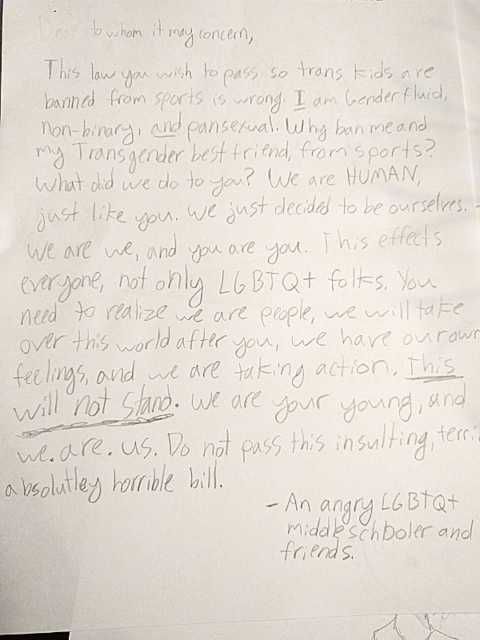 Dear to whom it may concern,
This law you wish to pass so trans kids are
banned from sports is wrong. I am Genderfluid,
non-binary, and pansexual. Why ban me and
my Transgender best friend, from sports?
What did we do to you? We are HUMAN,
just like you. We just decided to be ourselves.
We are we, and you are you. This effects
everyone, not only LGBTQ+ folks. You
need to realize we are people, we will take
over this world after you, we have our own
feelings, and we are taking action. This
will not stand. We are your young, and
we. are. us. Do not pass this insulting,
absolutley horrible bill.
- An angry LGBTQ+
middle schooler and
friends.